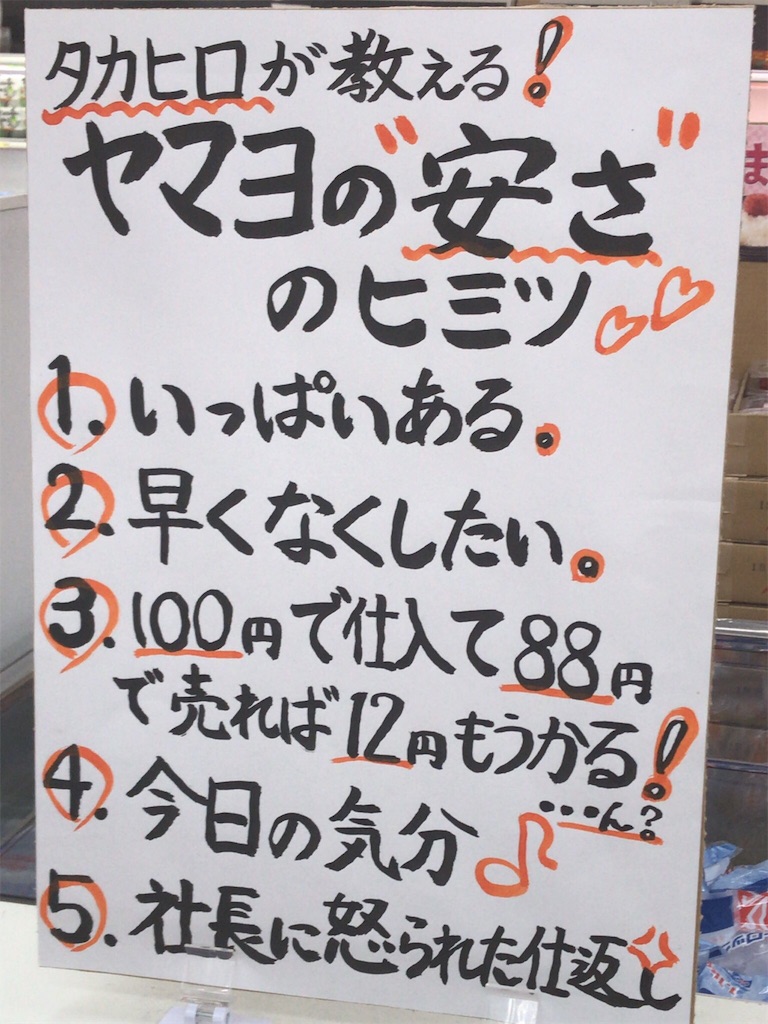 タカヒロが教える!
ヤマヨの"安さ"
のヒミツ
1. いっぱいある。
2. 早くなくしたい。
3. 100円で仕入て88円
で売れば12円もうかる!
・・・ん?
4. 今日の気分♪
5. 社長に怒られた仕返し
ま